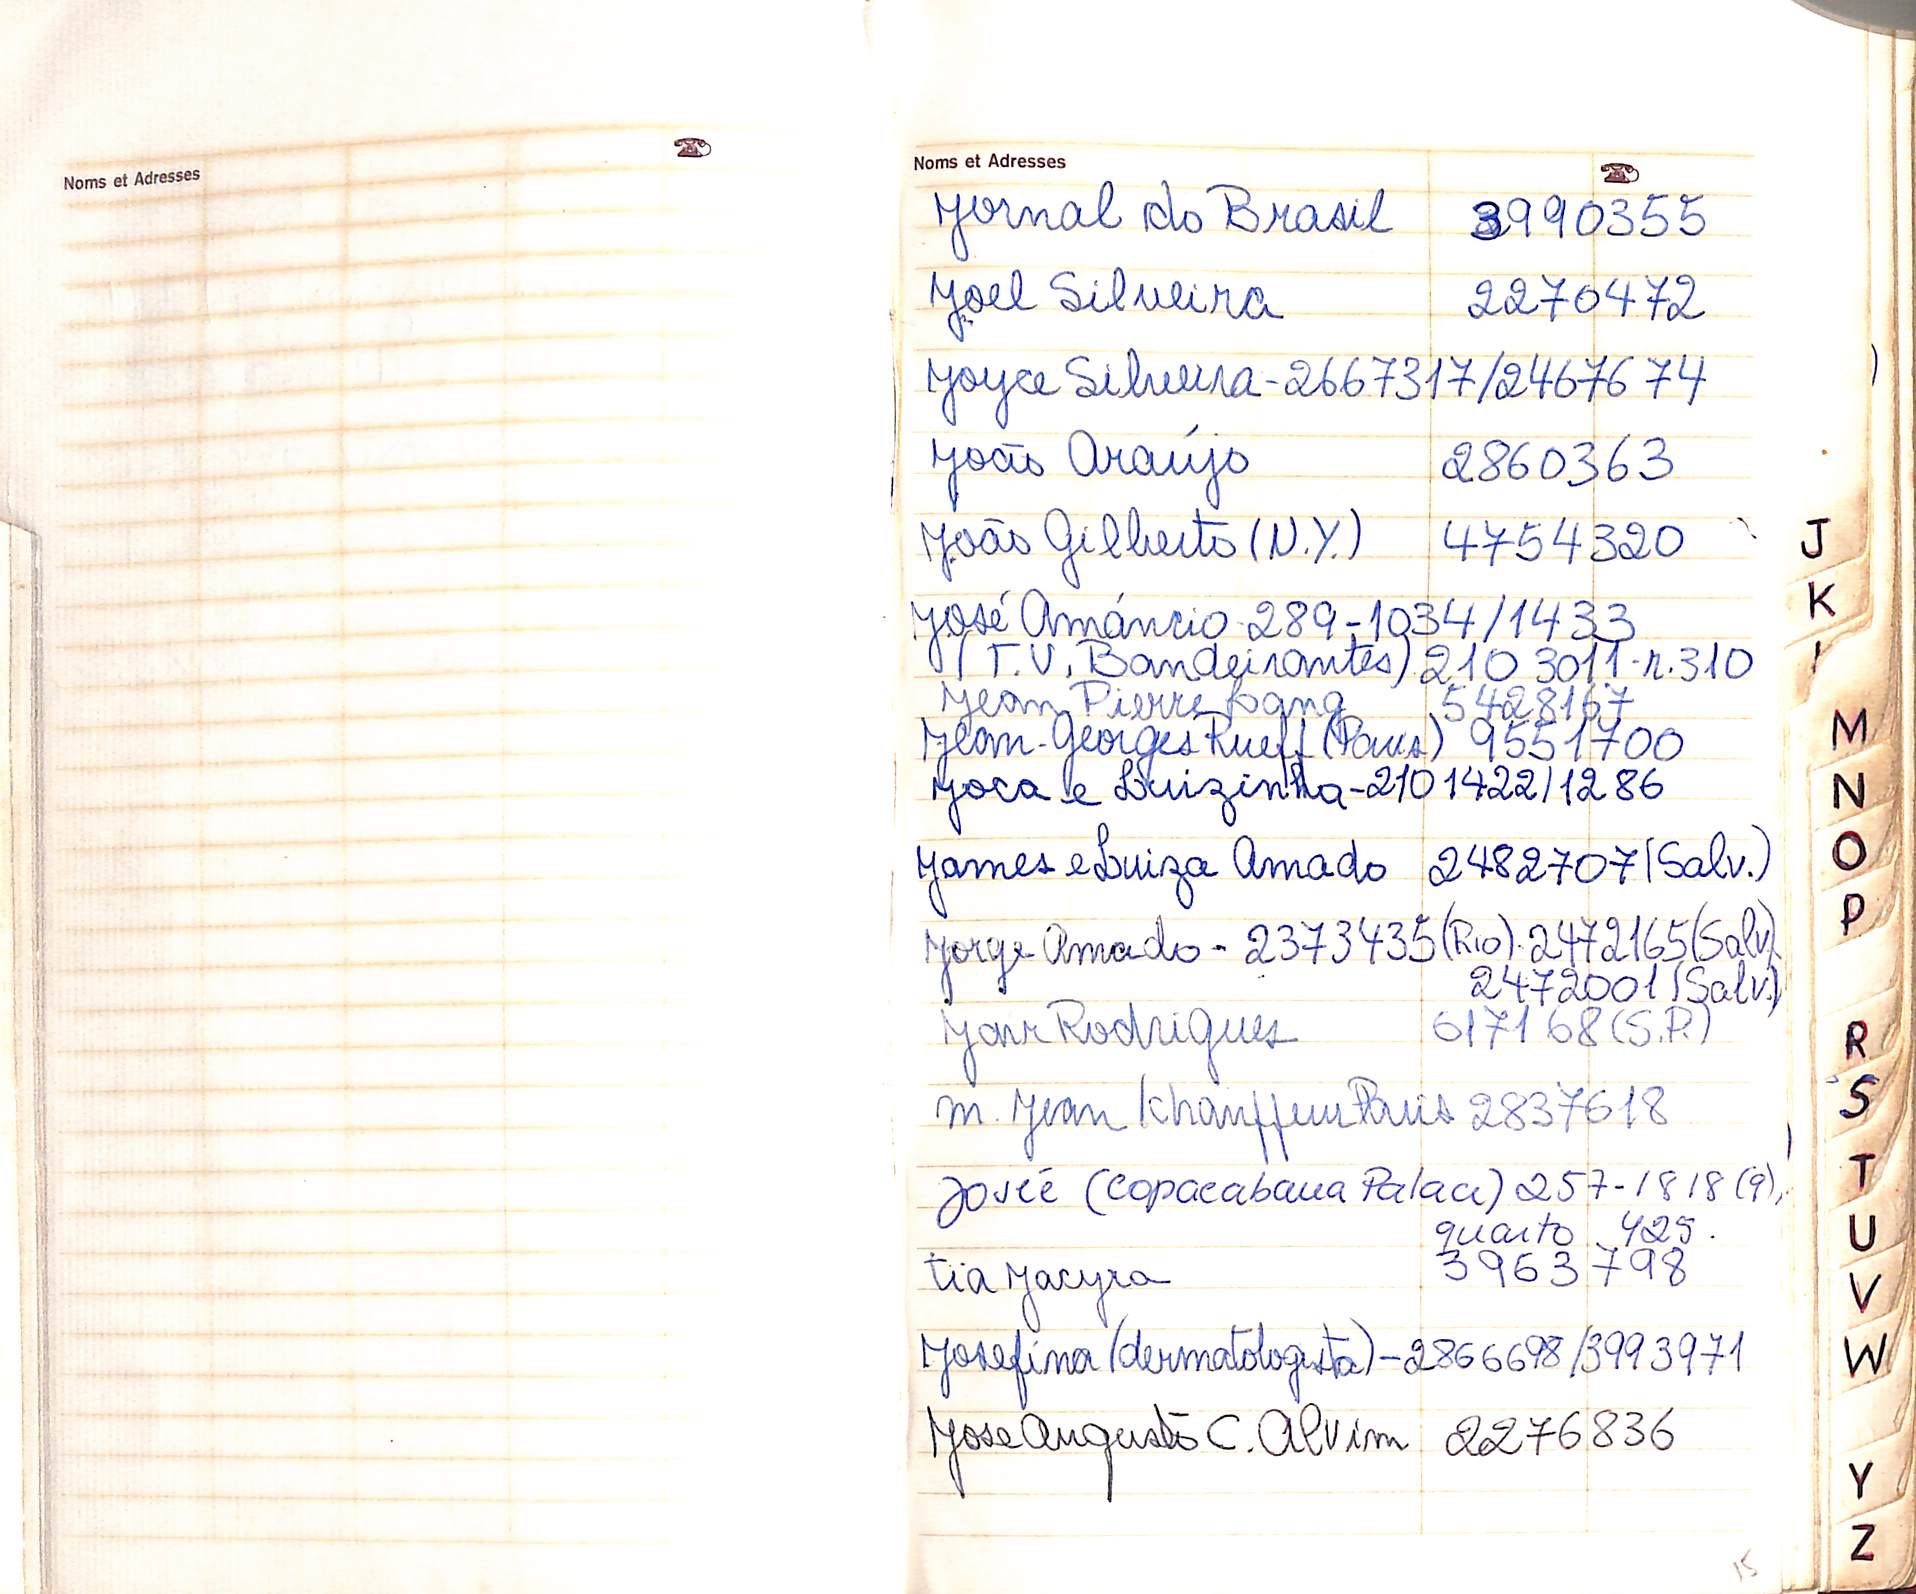 Noms et Adresses
Noms et Adresses
Jornal do Brasil 3990355
Joel Silveira 2270472
Joyce Silveira - 2667317/2467674
João Araújo 2860363
João Gilberto (N.Y.) 4754320
José Amáncio - 289-1034/1433
(T.V. Bandeirantes) 210 3011 - r. 310
Jean Pierre Lang 5428167
Jean-Georges Rueff (Paris) 9551700
Joca e Luizinha - 210 1422/1286
James e Luiza Amado 2482707 (Salv.)
Jorge Amado - 2373435 (Rio) - 2472165 (Salv)
2472001 (Salv)
Jair Rodrigues 617168 (S.P.)
m. Jean (chauffeur Paris 2837618
(Copacabana Palace) 257-1818 (9),
quarto 425.
tia Jacyra 3963798
Josefina (dermatologista) - 2866698/3993971
Jose Augusto C. Alvim 2276836
15
J
K
I
M
N
O
P
R
S
T
U
V
W
Y
Z